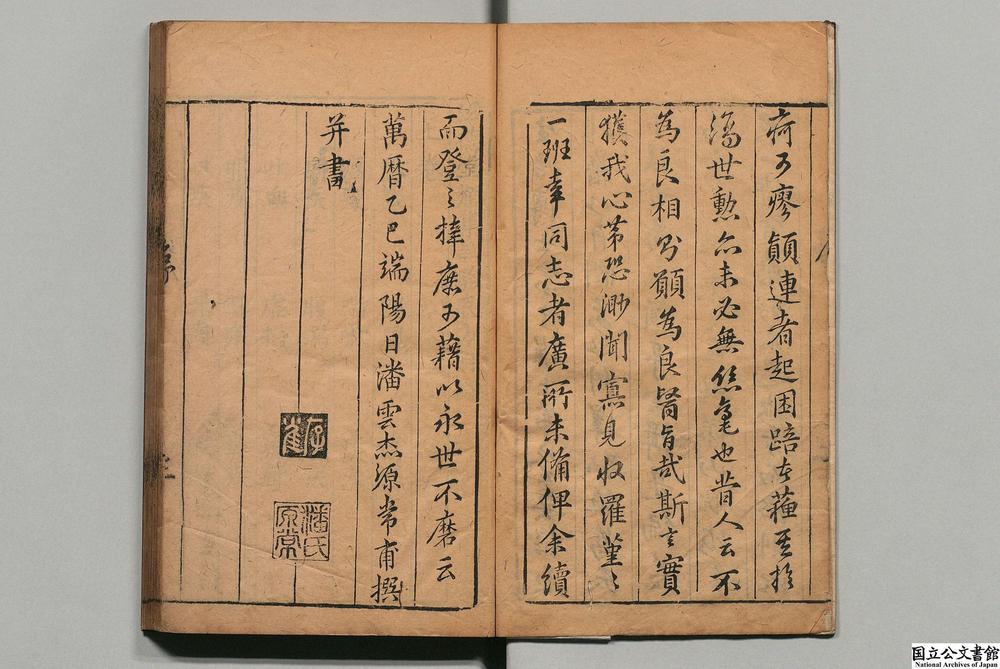 疴可瘳顛連者起困踣去蘓其於
濟世勲亦未必無絲毫也昔人云不
為良相則願為良醫旨哉斯言實
獲我心第恐渺聞寡見収羅堇〻
一班幸同志者廣所未備俾余續
而登之梓庶可藉以永世不磨云
萬曆乙巳端陽日潘雲杰源常甫撰
并書
潘氏
源常
国立公文書館
National Archives of Japan